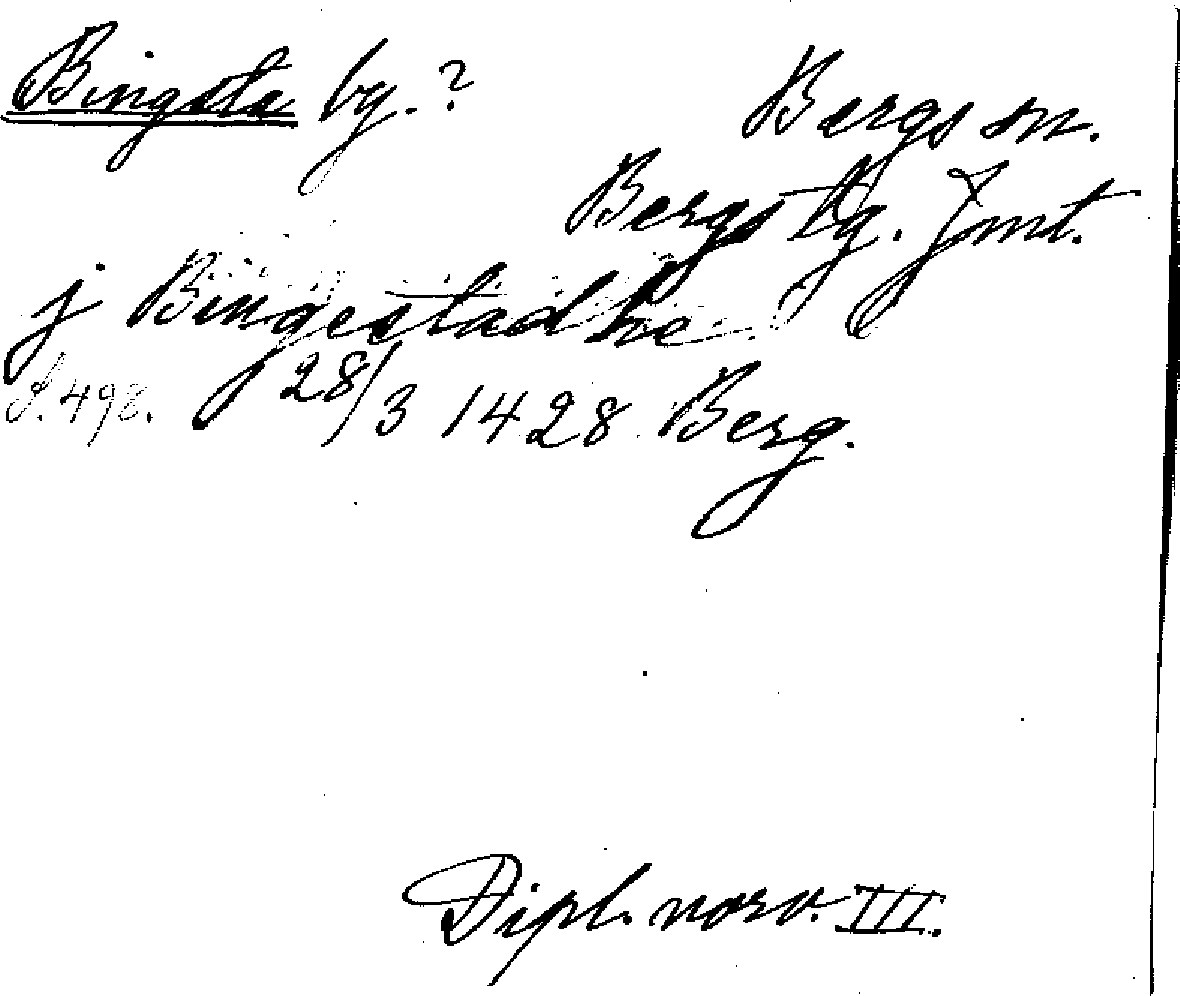 Bingsta by.?
Bergs sn.
Bergs tg. Jmt.
j Bingestadhe
S. 498. 28/3 1428 Berg.
Dipl. norv. III.